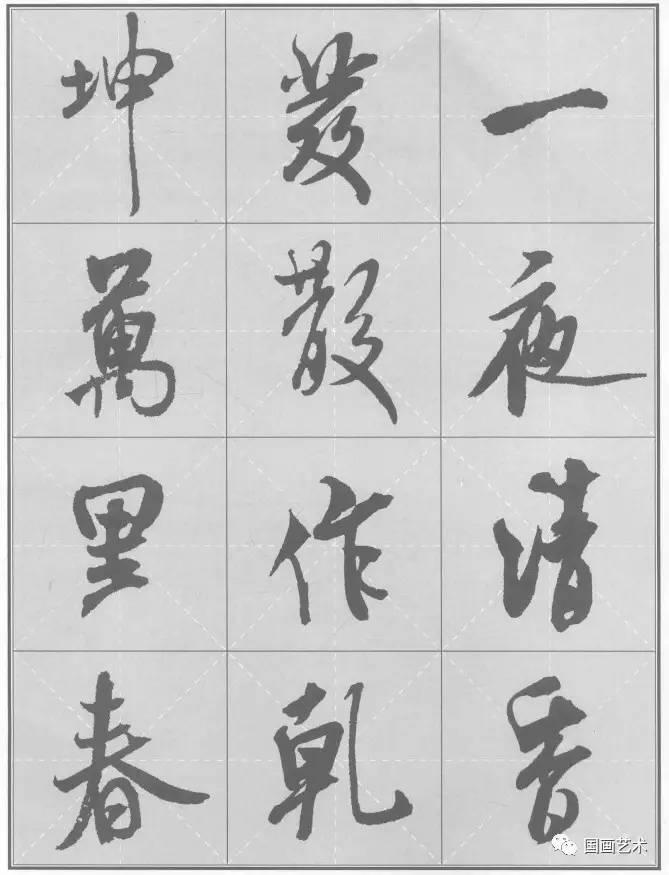 一夜清香
發散作乾
坤萬里春
国画艺术